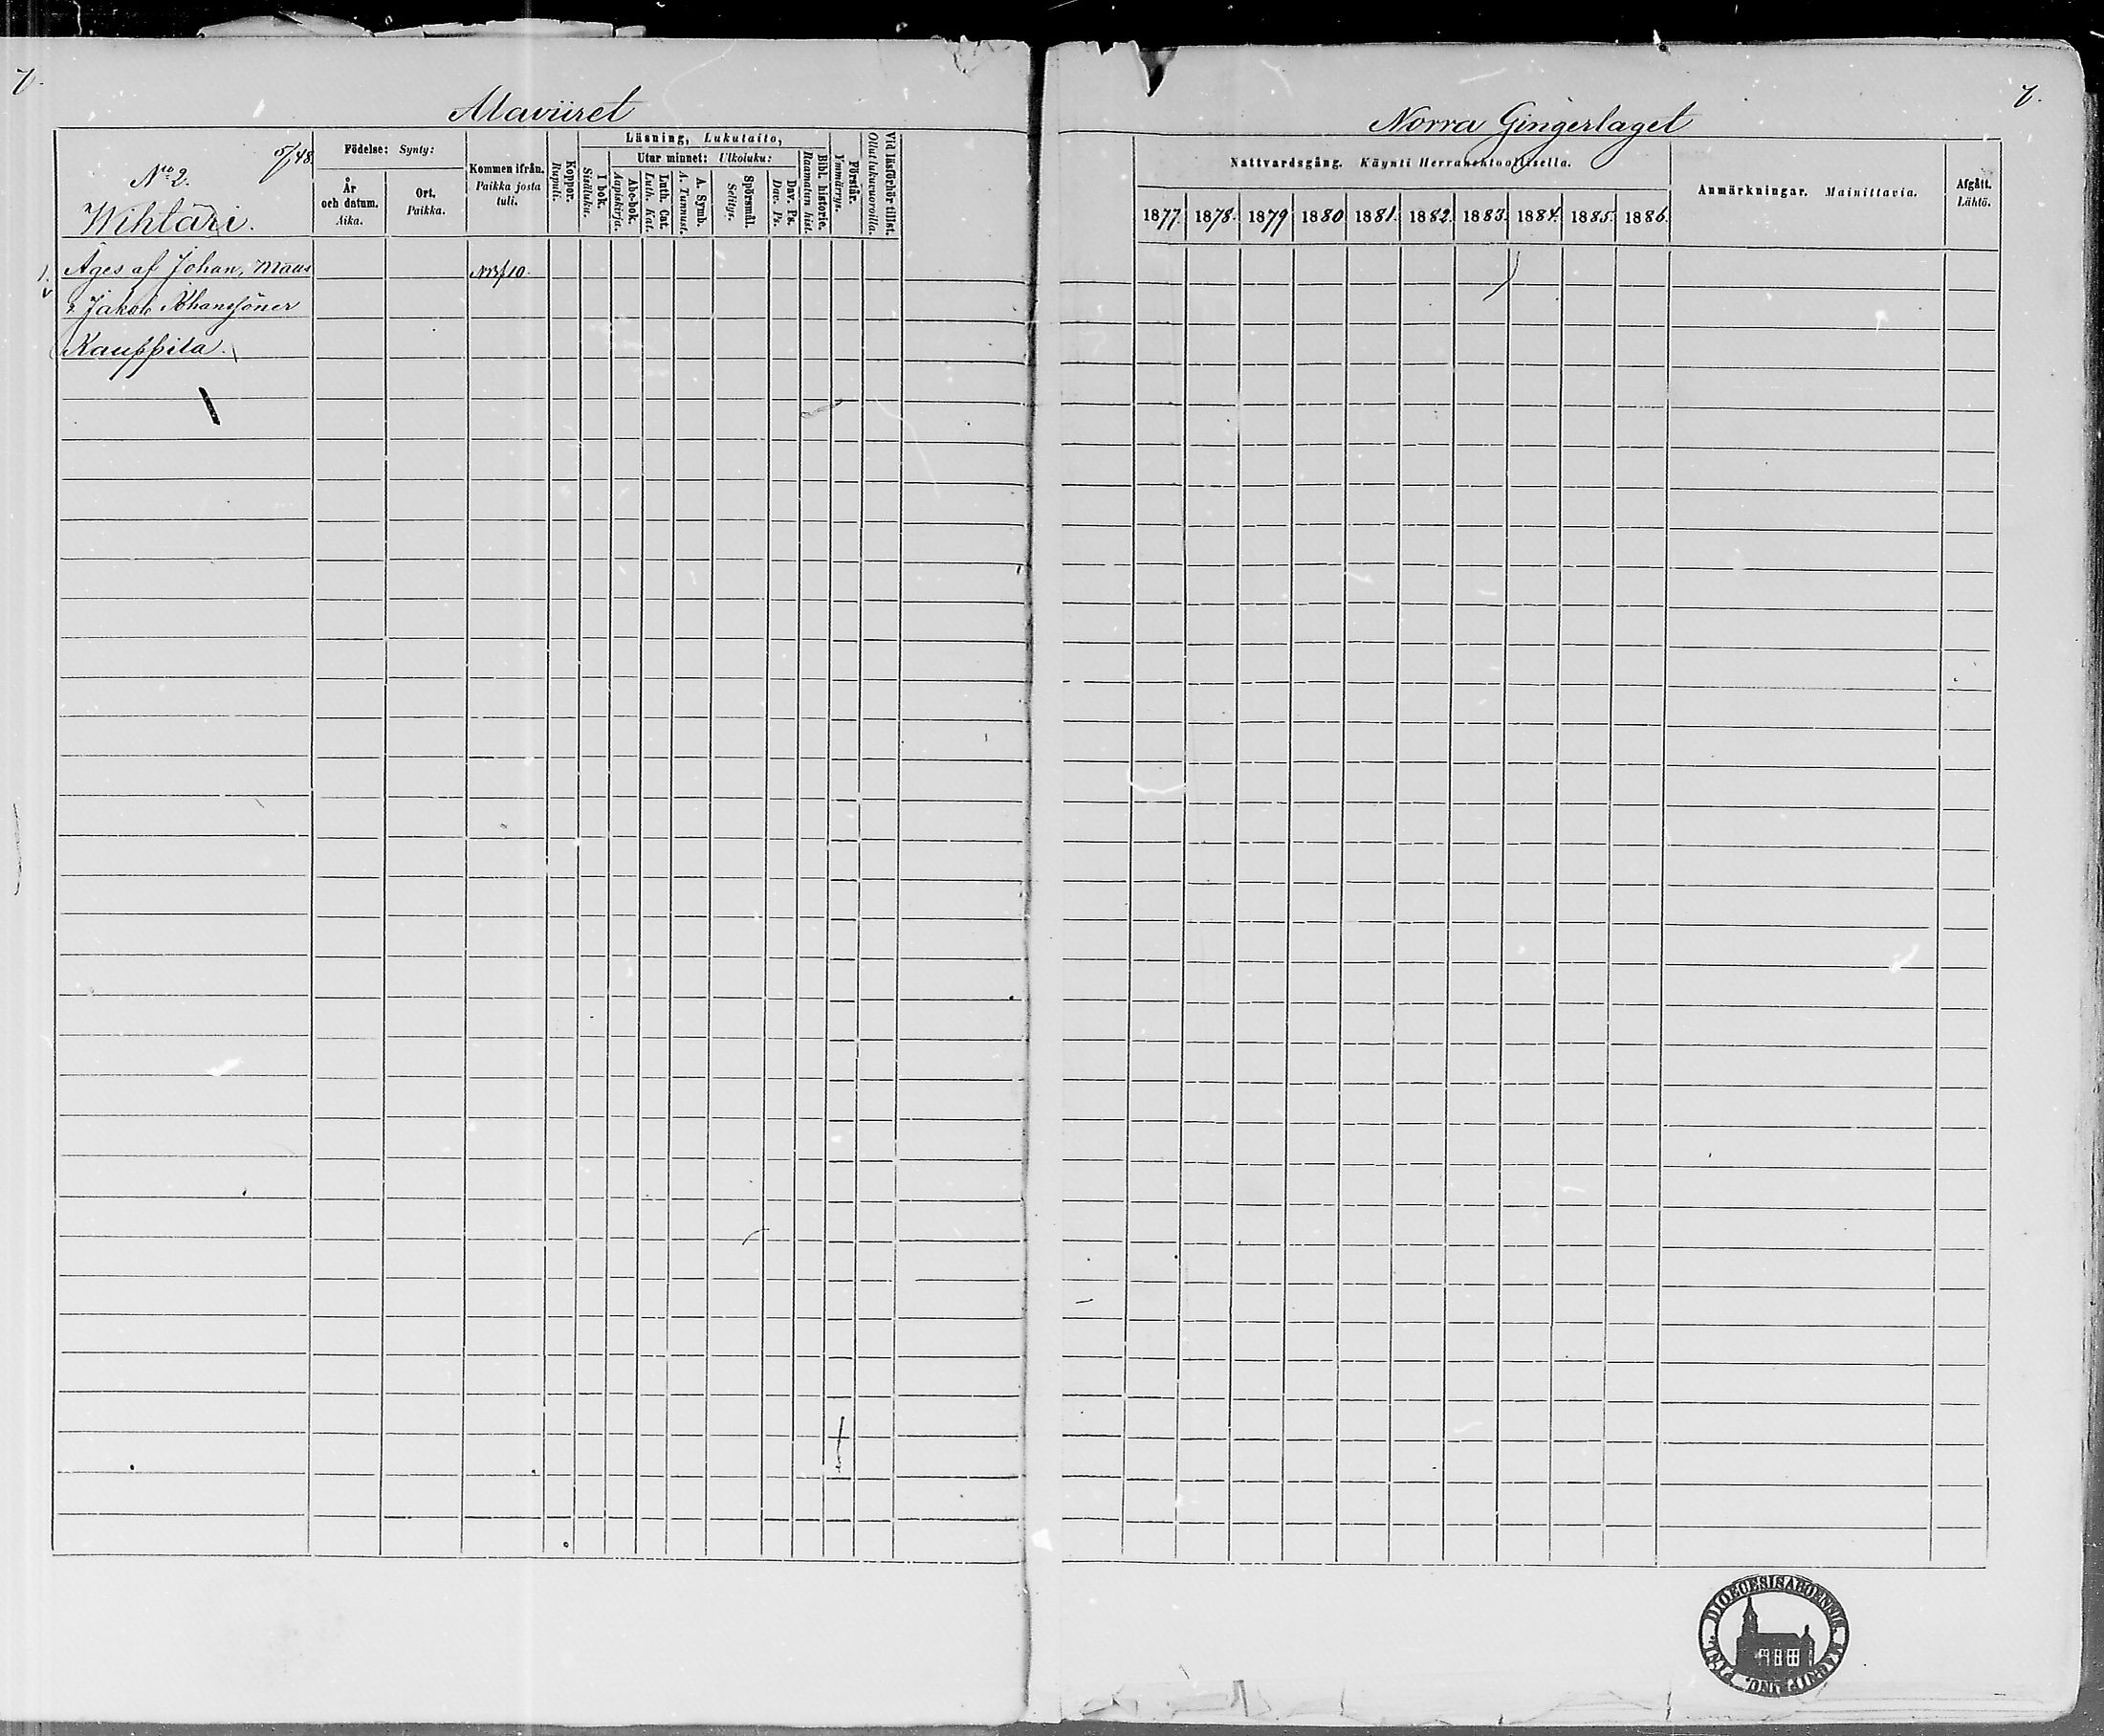 7.
Alaviiret
No 2.
5/48.
Wihtäri.
Födelse: Synty:
År och datum. Aika.
Ort. Paikka.
Kommen ifrån. Paikka josta tuli.
Koppor. Rupuli.
Läsning, Lukutaito,
I bok. Sisäluku.
Utur minnet: Ulkoluku:
Abc-bok. Aapiskirja.
Luth. Cat. Luth. Kat.
A. Symb. A. Tunnust.
Spörsmål. Selitys.
Dav. Ps. Dav. Ps.
Bibl. historie. Raamatun hist.
Förstår. Ymmärrys.
Vid läsförhör tillst. Ollut lukuvuoroilla.
1. Äges af Johan, Matts
Jakob Johanssöner
Kauppila.
7.
Norra Gingerlaget
Nattvardsgång. Käynti Herranehtoollisella.
1877. 1878. 1879 1880 1881. 1882. 1883. 1884. 1885. 1886.
Anmärkningar. Mainittavia.
Afgått. Lähtö.